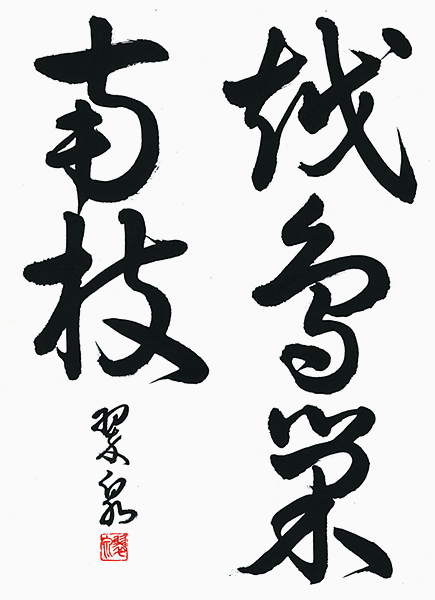 越鳥巣
南枝
翠泉